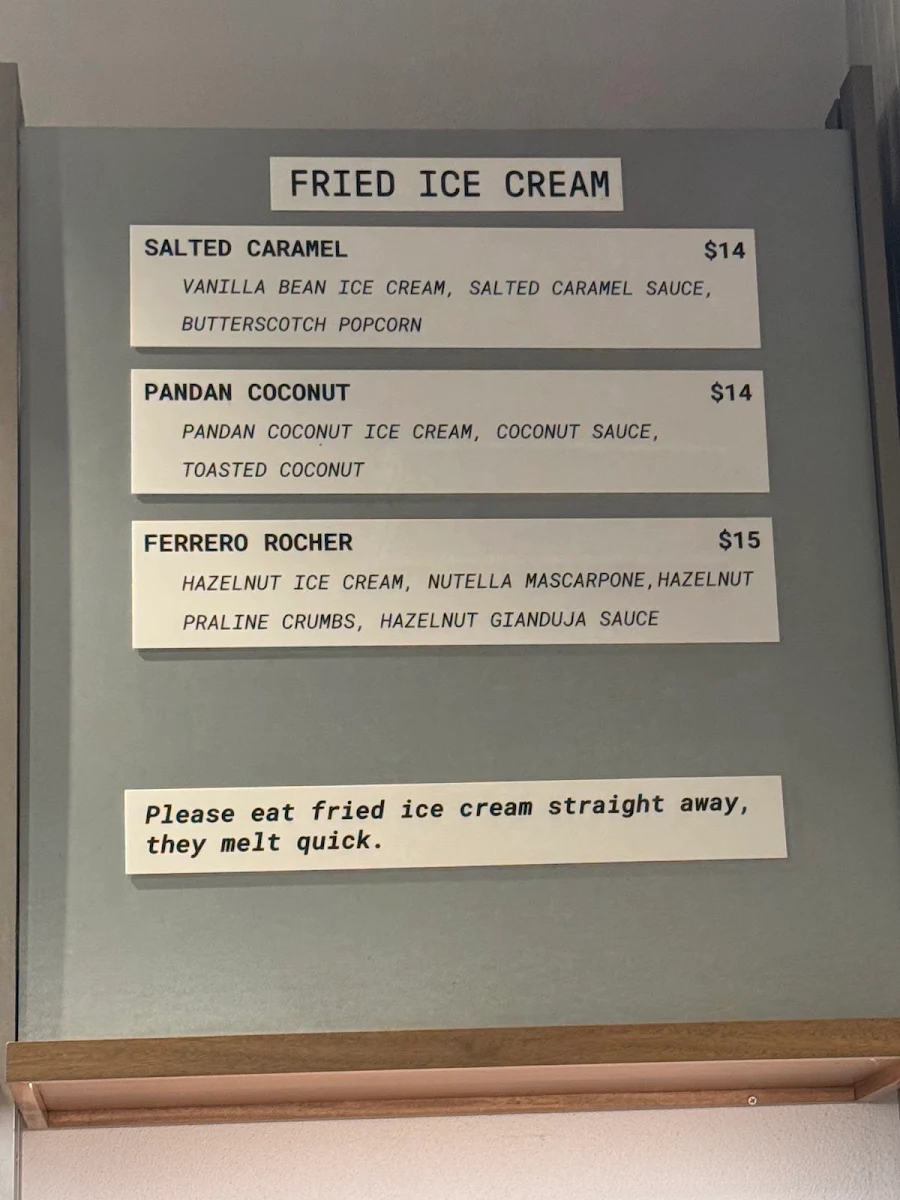 FRIED ICE CREAM
SALTED CARAMEL $14
VANILLA BEAN ICE CREAM, SALTED CARAMEL SAUCE,
BUTTERSCOTCH POPCORN
PANDAN COCONUT $14
PANDAN COCONUT ICE CREAM, COCONUT SAUCE,
TOASTED COCONUT
FERRERO ROCHER $15
HAZELNUT ICE CREAM, NUTELLA MASCARPONE,HAZELNUT
PRALINE CRUMBS, HAZELNUT GIANDUJA SAUCE
Please eat fried ice cream straight away,
they melt quick.